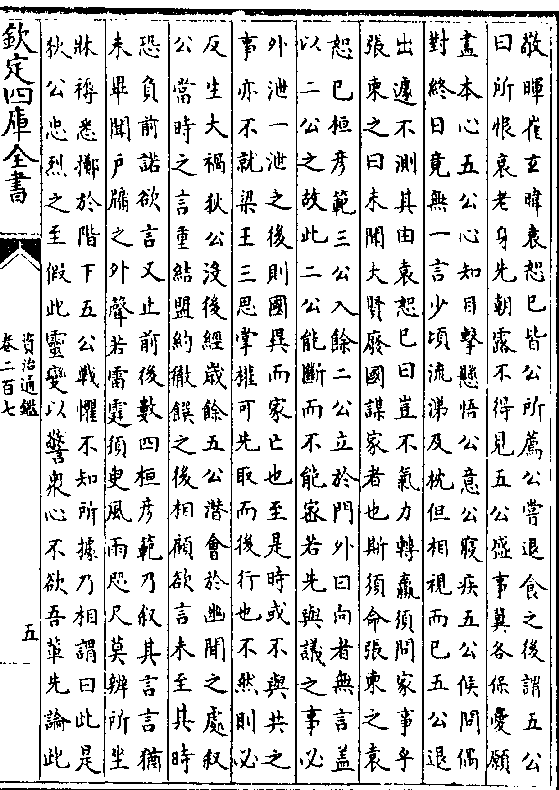 敬暉崔玄暐袁恕己皆公所薦公嘗退食之後謂五公
曰所恨衰老身先朝露不得見五公盛事冀各保愛願
盡本心五公心知目擊懸悟公意公寢疾五公候問偶
對終日竟無一言少頃流涕及枕但相視而已五公退
出遽不測其由袁恕己曰豈不氣力轉羸須問家事乎
張柬之曰未聞大賢廢國謀家者也斯須命張柬之袁
恕己桓彥範三公入餘二公立於門外曰向者無言蓋
以二公之故此二公能斷而不能密若先與議之事必
外泄一泄之後則國異而家亡也至是時或不與共之
事亦不就梁王三思掌權可先取而後行也不然則必
反生大禍狄公沒後經歲餘五公潛會於幽閒之處叙
公當時之言重結盟約徹饌之後相顧欲言未至其時
恐負前諾欲言又止前後數四桓彥範乃叙其言言猶
未畢聞戶牖之外聲若雷霆須臾風雨咫尺莫辨所坐
牀褥悉擲於階下五公戰懼不知所據乃相謂曰此是
狄公忠烈之至假此靈變以警衆心不欲吾輩先論此
欽定四庫全書
資治通鑑
卷二百七
五